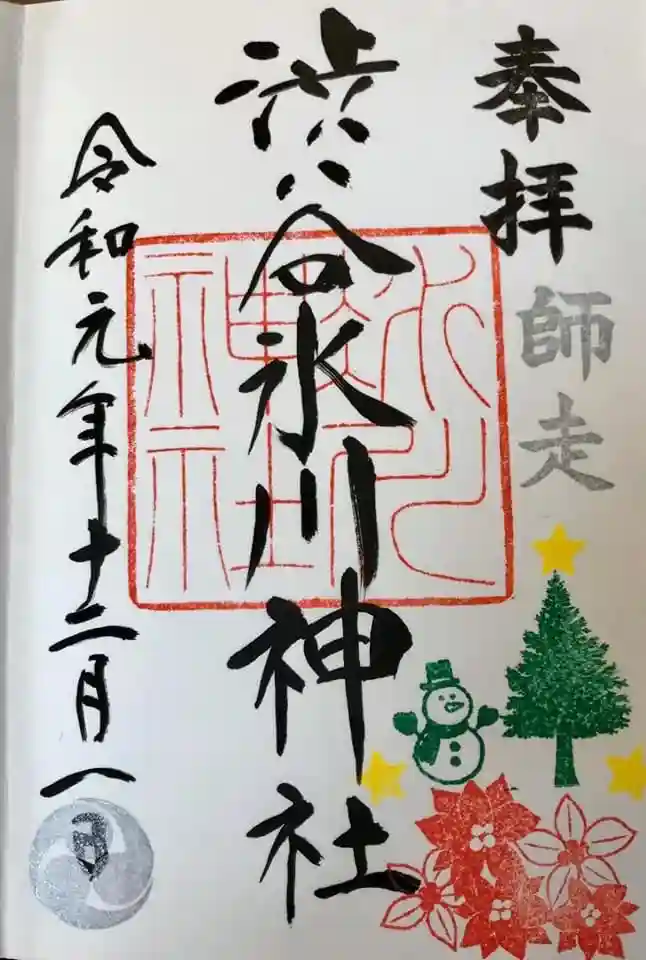 奉拝 師走
渋谷氷川神社
氷川神社
令和元年十二月八日